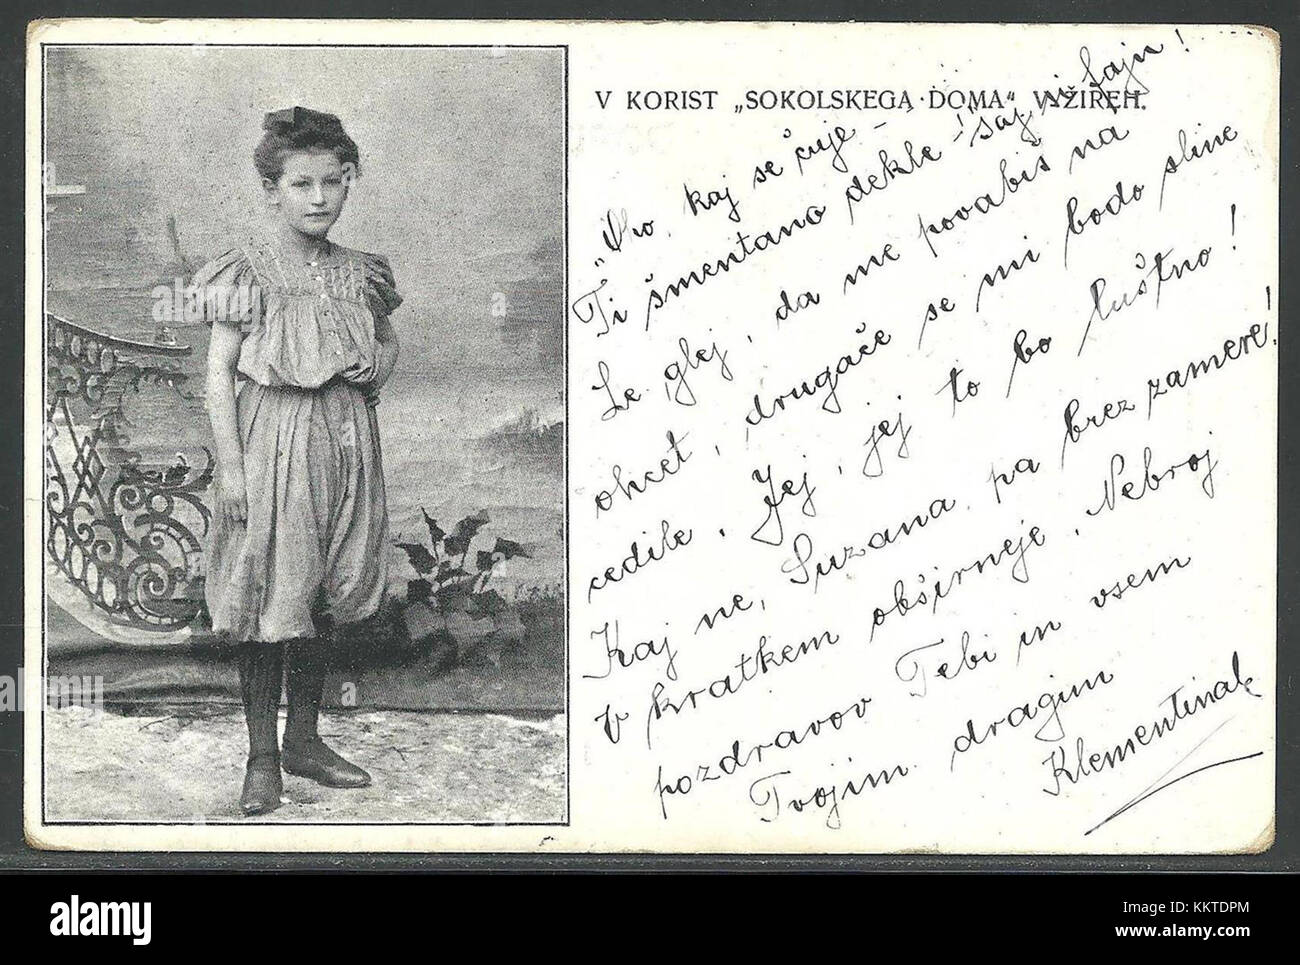 V KORIST „SOKOLSKEGA DOMA“ V ŽIREH.
kaj se čuje –
Ti šmentano dekle! Saj ni fajn!
Le glej, da me povabiš na
ohcet, drugače se mi bodo sline
cedile. Jej, jej to bo luštno!
Kaj ne, Suzana, pa brez zamere!
V kratkem obširneje. Nebroj
pozdravov Tebi in vsem
Tvojim dragim
Klementina
alamy
Image ID: KKTDPM
www.alamy.com